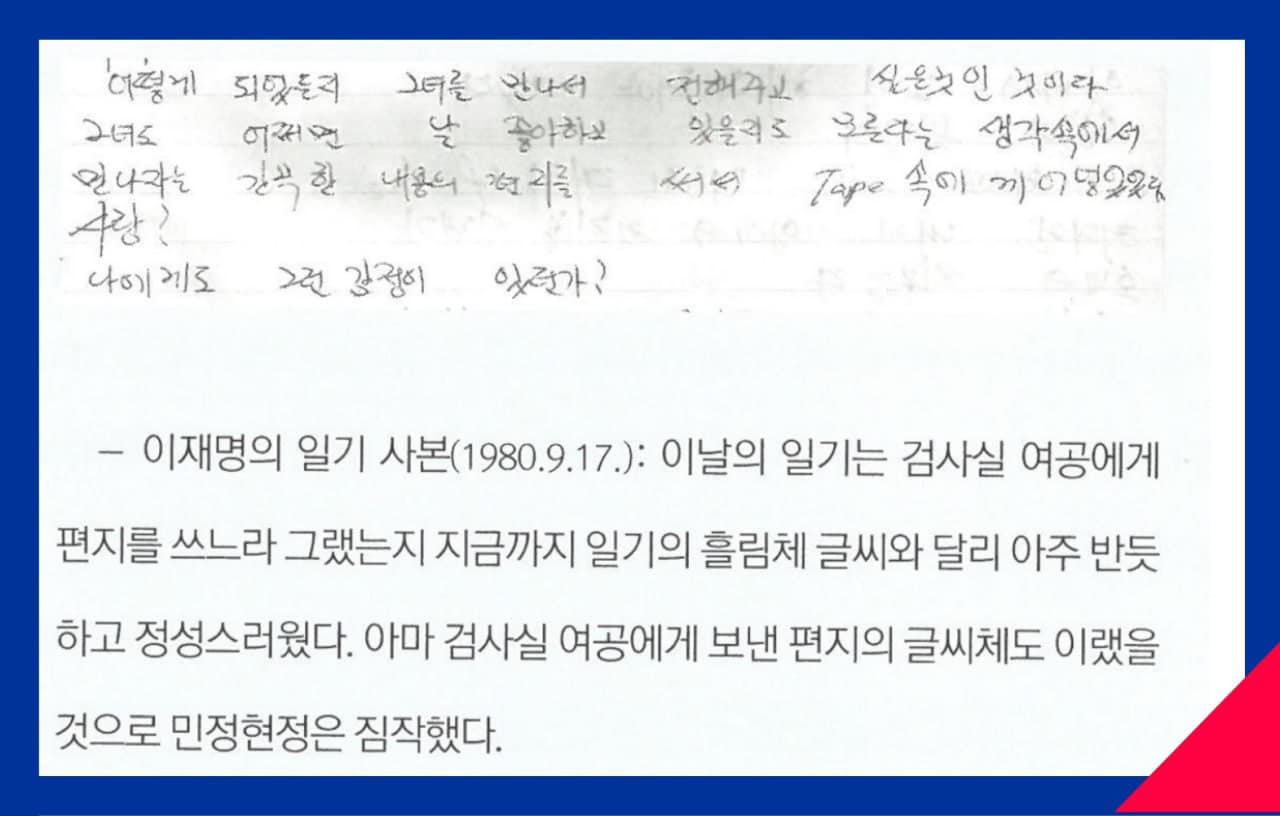 '어떻게 되었든지 그녀를 만나서 전해주고 싶은것인 것이다
그녀도 어쩌면 날 좋아하고 있을지도 모른다는 생각속에서
만나자는 간곡한 내용의 편지를 써서 Tape 속에 끼어넣었었
사랑?
나에게도 그런 감정이 있런가?
– 이재명의 일기 사본(1980.9.17.): 이날의 일기는 검사실 여공에게
편지를 쓰느라 그랬는지 지금까지 일기의 흘림체 글씨와 달리 아주 반듯
하고 정성스러웠다. 아마 검사실 여공에게 보낸 편지의 글씨체도 이랬을
것으로 민정현정은 짐작했다.